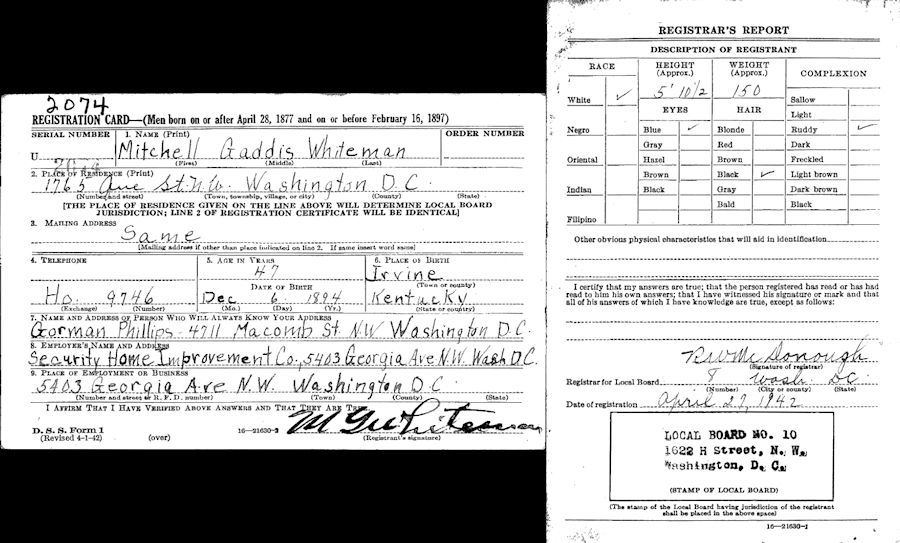 2074
REGISTRATION CARD—(Men born on or after April 28, 1877 and on or before February 16, 1897)
SERIAL NUMBER
1. NAME (Print)
ORDER NUMBER
U
Mitchell Gaddis Whiteman
(First) (Middle) (Last)
2. PLACE OF RESIDENCE (Print)
1765 St. N.W. Washington D.C.
(Number and street) (Town, township, village, or city) (County) (State)
[THE PLACE OF RESIDENCE GIVEN ON THE LINE ABOVE WILL DETERMINE LOCAL BOARD
JURISDICTION; LINE 2 OF REGISTRATION CERTIFICATE WILL BE IDENTICAL]
3. MAILING ADDRESS
Same
[Mailing address if other than place indicated on line 2. If same insert word same]
4. TELEPHONE
5. AGE IN YEARS
6. PLACE OF BIRTH
47
Irvine
DATE OF BIRTH
(Town or county)
Ho. 9746
Dec 6 1894
Kentucky
(Exchange) (Number)
(Mo.) (Day) (Yr.)
(State or country)
7. NAME AND ADDRESS OF PERSON WHO WILL ALWAYS KNOW YOUR ADDRESS
Gorman Phillips - 4711 Macomb St. NW Washington D.C.
8. EMPLOYER'S NAME AND ADDRESS
Security Home Improvement Co., 5403 Georgia Ave N.W. Wash D.C.
9. PLACE OF EMPLOYMENT OR BUSINESS
5403 Georgia Ave N.W. Washington D.C.
(Number and street or R. F. D. number) (Town) (County) (State)
I AFFIRM THAT I HAVE VERIFIED ABOVE ANSWERS AND THAT THEY ARE TRUE.
D. S. S. Form 1
(Revised 4-1-42)
(over)
16—21630-2
M G Whiteman
(Registrant's signature)
REGISTRAR'S REPORT
DESCRIPTION OF REGISTRANT
RACE
HEIGHT
(Approx.)
WEIGHT
(Approx.)
COMPLEXION
White ✓
5' 10 1/2
150
Sallow
EYES
HAIR
Light
Negro
Blue ✓
Blonde
Ruddy ✓
Gray
Red
Dark
Oriental
Hazel
Brown
Freckled
Brown
Black ✓
Light brown
Indian
Black
Gray
Dark brown
Bald
Black
Filipino
Other obvious physical characteristics that will aid in identification
I certify that my answers are true; that the person registered has read or has had
read to him his own answers; that I have witnessed his signature or mark and that
all of his answers of which I have knowledge are true, except as follows:
McDonough
(Signature of registrar)
Registrar for Local Board Wash. D.C.
(Number) (City or county) (State)
Date of registration April 27, 1942
LOCAL BOARD NO. 10
1622 H Street, N. W.
Washington, D. C.
(STAMP OF LOCAL BOARD)
(The stamp of the Local Board having jurisdiction of the registrant
shall be placed in the above space)
16—21630-1